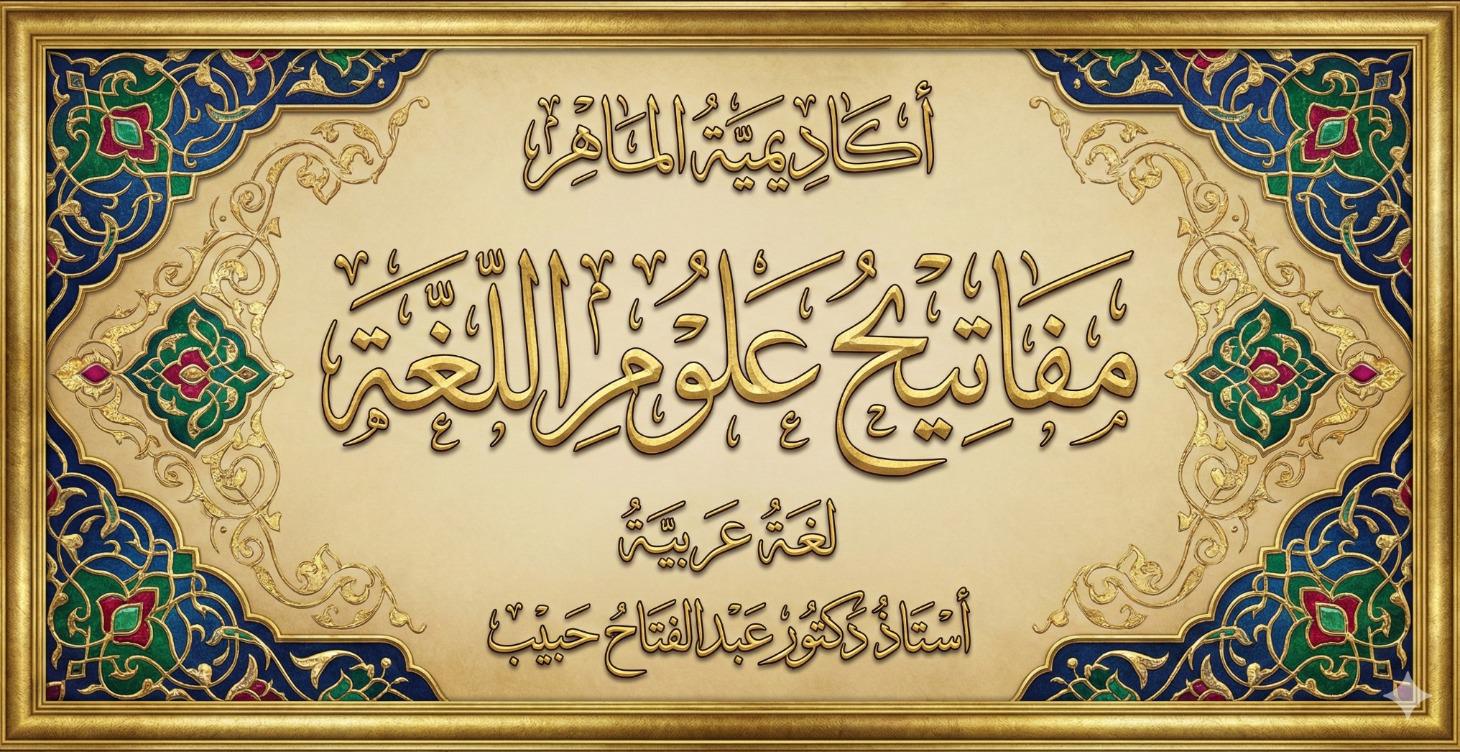 أَكَادِيمِيَّةُ المَاهِرِ
مَفَاتِيحُ عَلُومِ اللُّغَّةِ
لُغَةٌ عَرَبِيَّةٌ
أُسْتَاذُ دَكْتُورُ عَبْدالفَتَّاحُ حَبِيْب